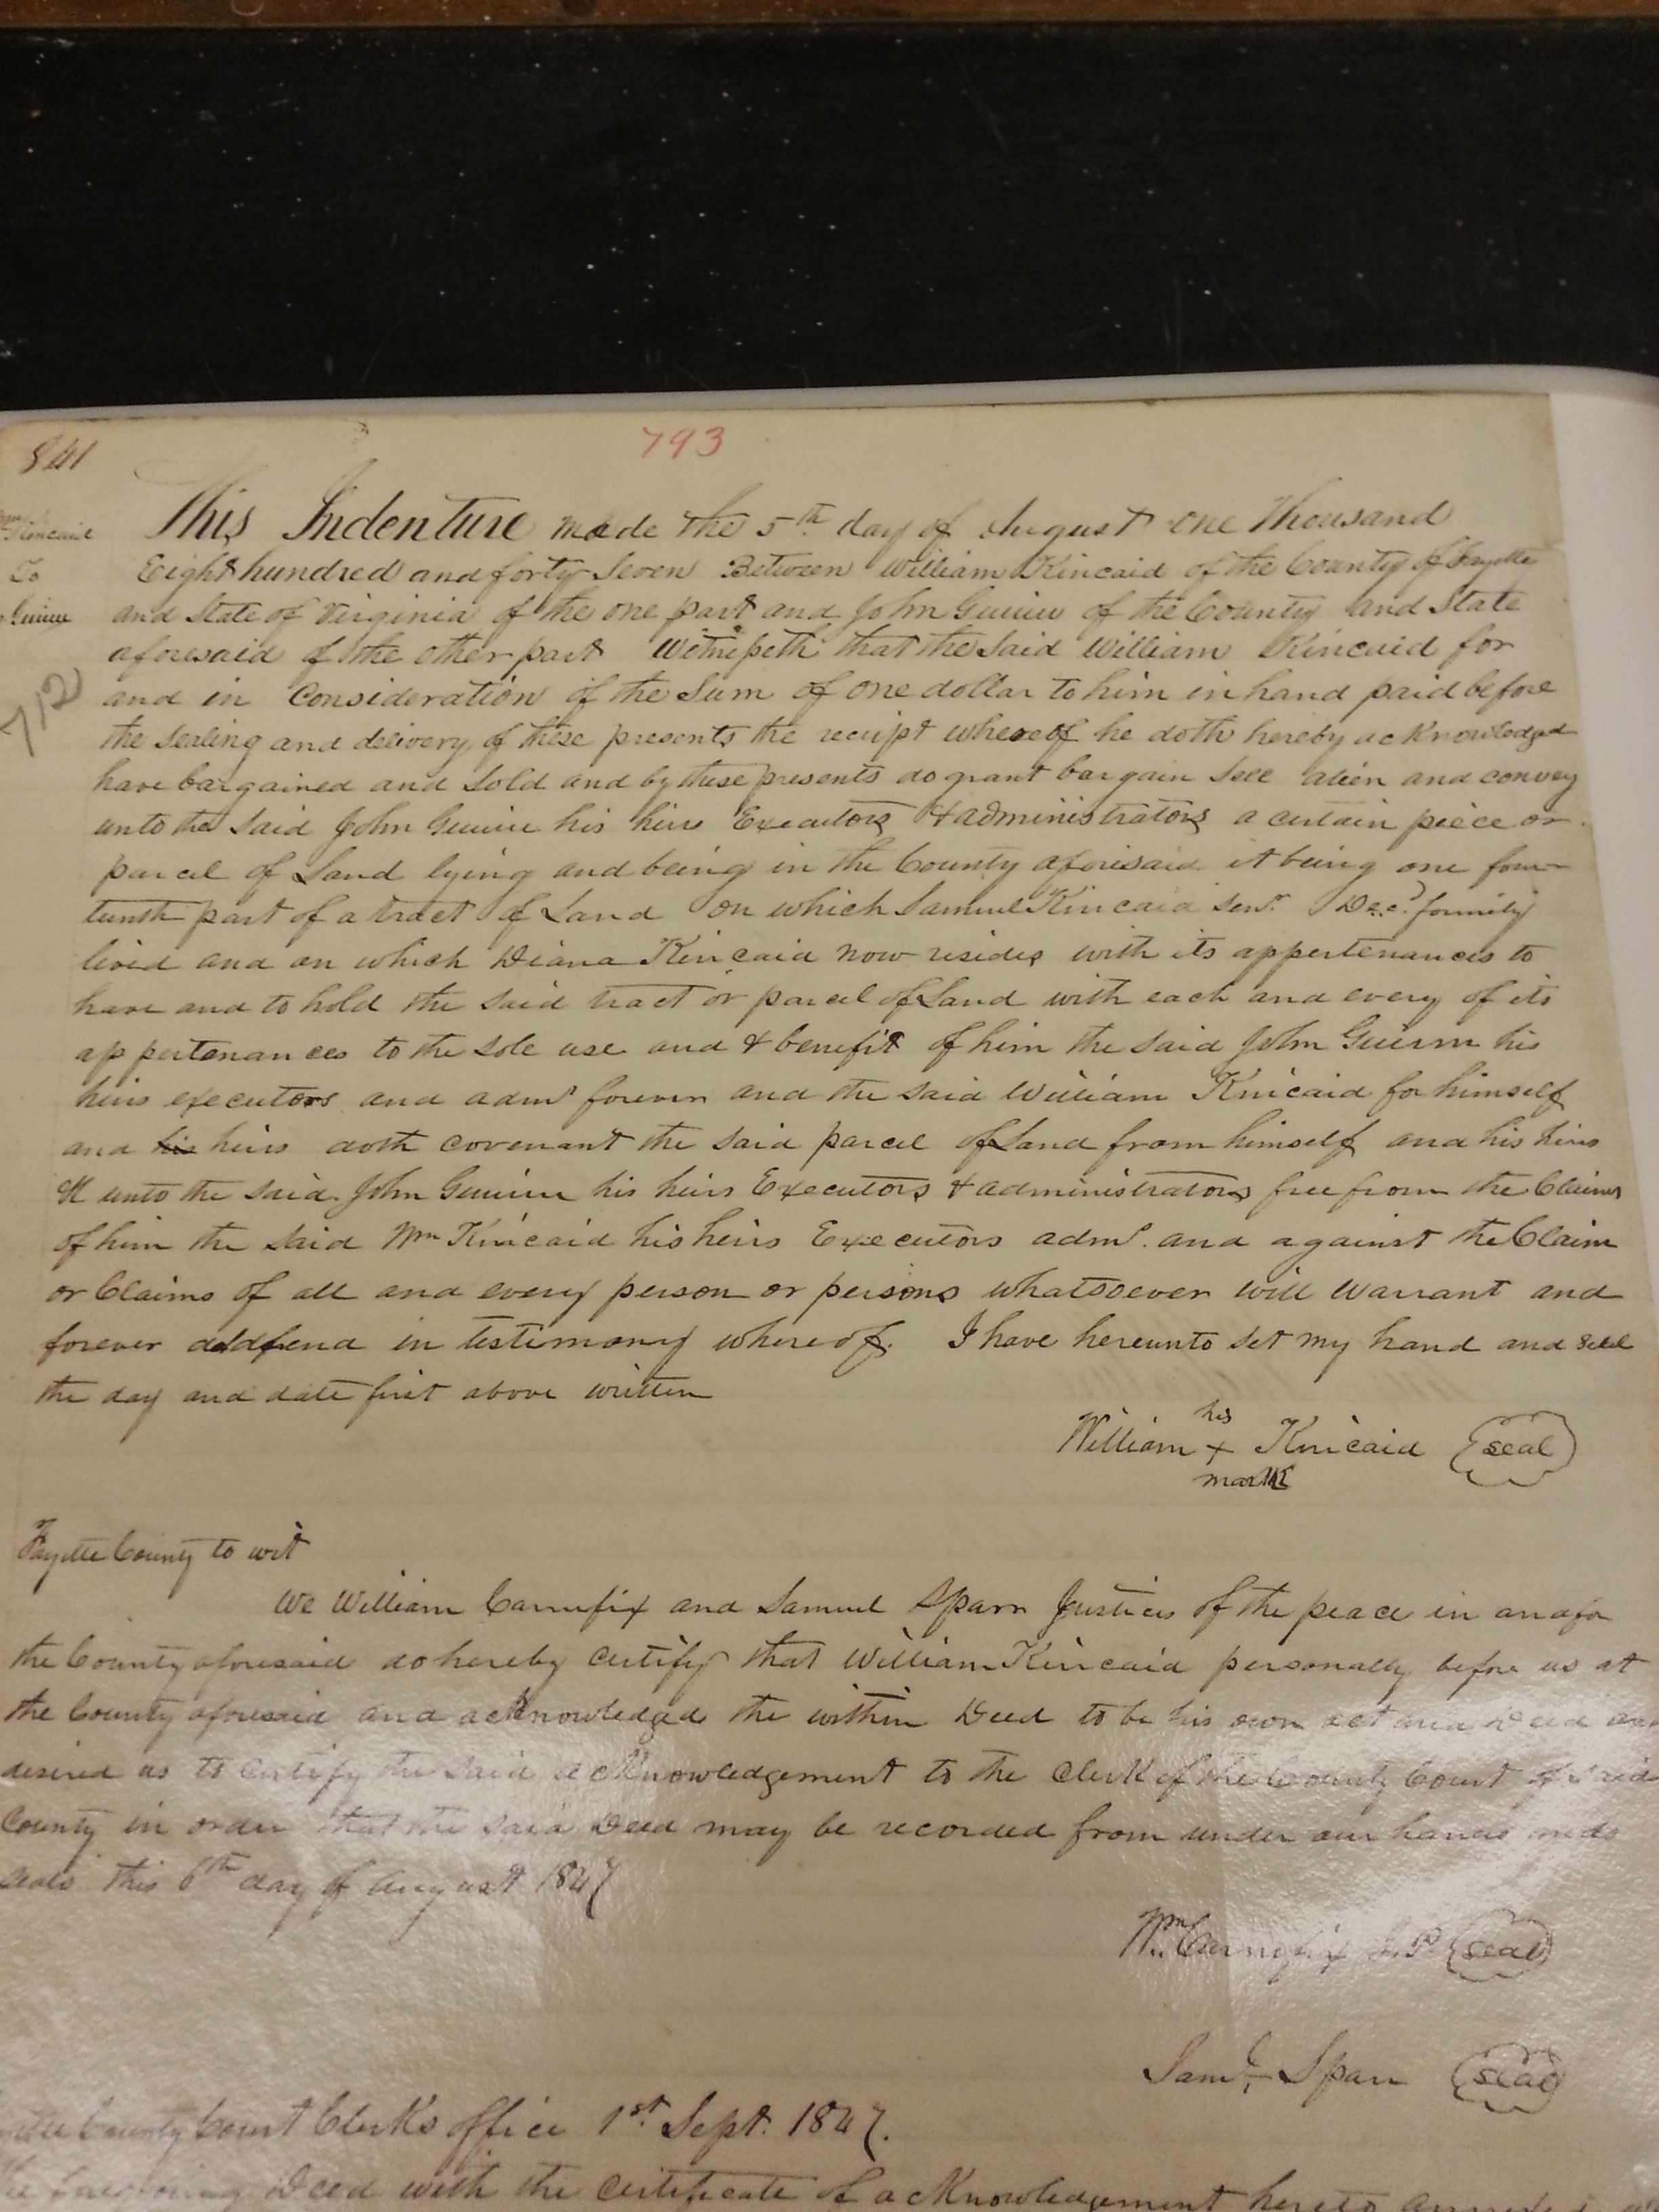 841
793
Wm Kincaid
To
Guinn
712
This Indenture made the 5th day of August one Thousand
Eight hundred and forty Seven Between William Kincaid of the County of Fayette
and State of Virginia of the one part and John Guinn of the County and State
aforesaid of the other part Witnesseth that the said William Kincaid for
and in Consideration of the Sum of one dollar to him in hand paid before
the sealing and delivery of these presents the receipt whereof he doth hereby acknowledged
have bargained and sold and by these presents do grant bargain sell alien and convey
unto the said John Guinn his heirs Executors & administrators a certain piece or
parcel of Land lying and being in the County aforesaid it being one four-
teenth part of a tract of Land on which Samuel Kincaid Senr. Decd. formily
lived and on which Diana Kincaid now resides with its appertenances to
have and to hold the said tract or parcel of Land with each and every of its
appertenances to the sole use and & benefit of him the said John Guinn his
heirs executors and admrs forever and the said William Kincaid for himself
and his heirs doth covenant the said parcel of Land from himself and his heirs
unto the said John Guinn his heirs Executors & administrators free from the Claims
of him the said Wm Kincaid his heirs Executors admrs. and against the Claim
or Claims of all and every person or persons whatsoever will warrant and
forever defend in testimony whereof. I have hereunto set my hand and seal
the day and date first above written
his
William + Kincaid seal
mark
Fayette County to wit
We William Carnefix and Samuel Sparr Justices of the peace in and for
the County aforesaid do hereby certify that William Kincaid personally before us at
the County aforesaid and acknowledged the within Deed to be his own act and Deed and
desired us to certify the said acknowledgement to the Clerk of the County Court of said
County in order that the said Deed may be recorded from under our hands and
seals this 6th day of August 1847
Wm. Carnefix J.P. seal
Saml. Sparr seal
County Court Clerks office 1st Sept. 1847.
Deed with the certificate of acknowledgement hereto